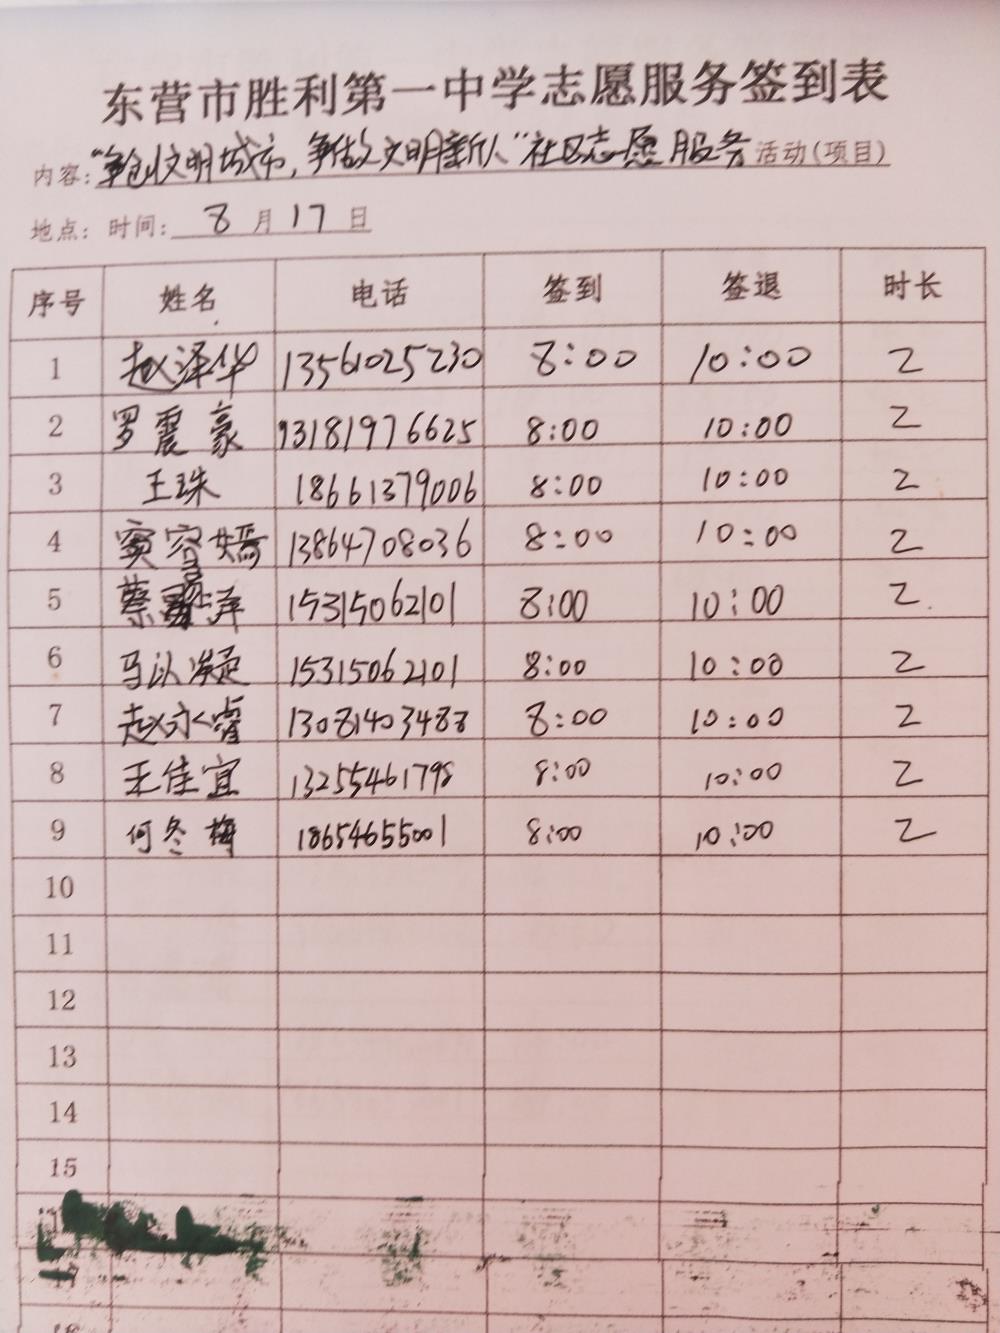 东营市胜利第一中学志愿服务签到表
内容："争创文明城市，争做文明新人"社区志愿服务活动(项目)
地点：时间：8月17日
序号 姓名 电话 签到 签退 时长
1 赵泽华 13561025230 8:00 10:00 2
2 罗震豪 13181976625 8:00 10:00 2
3 王珠 18661379006 8:00 10:00 2
4 窦容嫣 13864708036 8:00 10:00 2
5 蔡泽 15315062101 8:00 10:00 2
6 马以凝 15315062101 8:00 10:00 2
7 赵永睿 13081403488 8:00 10:00 2
8 王佳宜 13255461798 8:00 10:00 2
9 何冬梅 18654655001 8:00 10:00 2
10
11
12
13
14
15